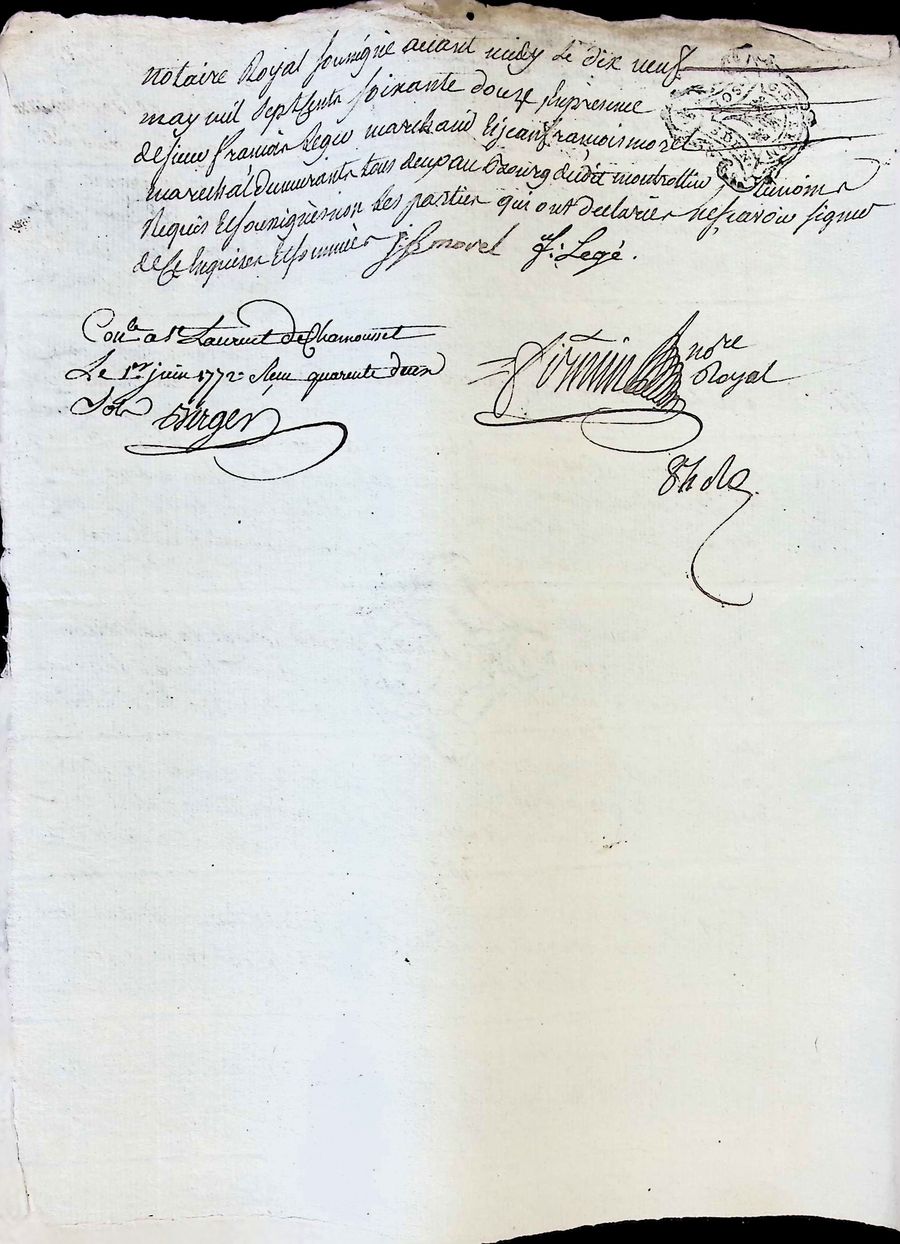 notaire Royal sousigné avant midy le dix neuf
may mil sept cents soixante douze En presence
de sieur francois Legé marchand Et jean francois morel
marechal demurants tous deux au Bourg dudit montrottier, temoins
Requis Et sousignés non Les parties qui ont declarées ne scavoir signer
de ce Enquises Et sommées j f morel f: Legé.
Con.le a St Laurent de Chamousset
Le 1er juin 1772 Reçu quarente deux
sols Birger
firmin nore
Royal